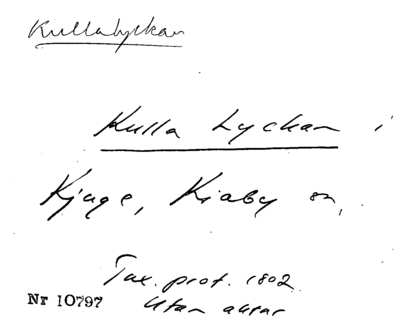 Kullalyckan
Kulla Lyckan i
Kjuge, Kiaby sn,
Tax. prot. 1802
Nr 10797 Utan axtar